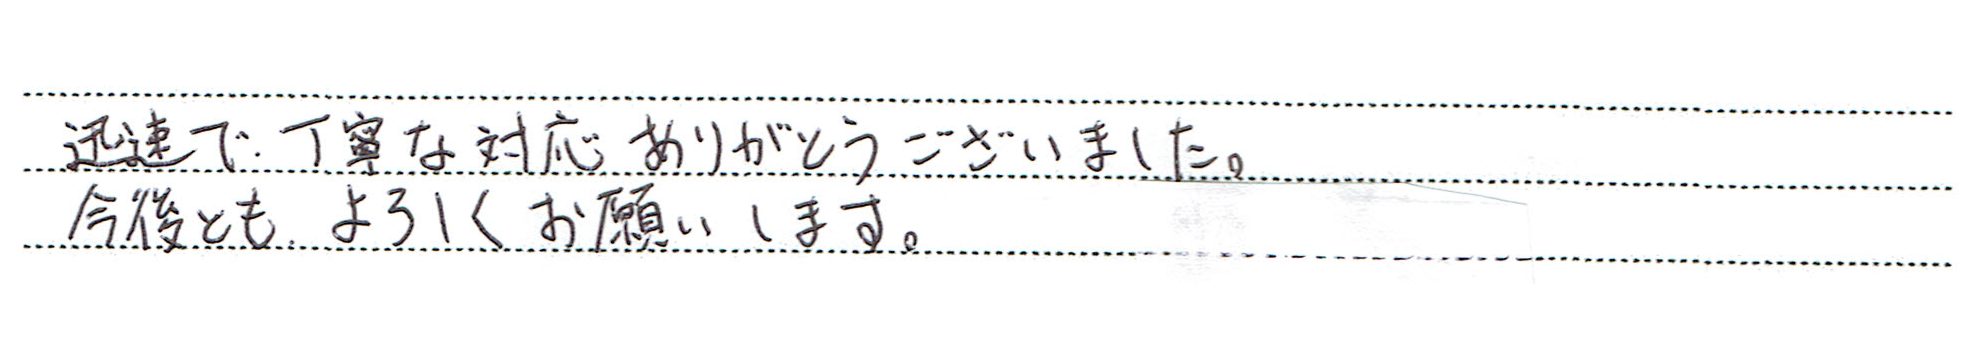 迅速で、丁寧な対応ありがとうございました。
今後とも、よろしくお願いします。